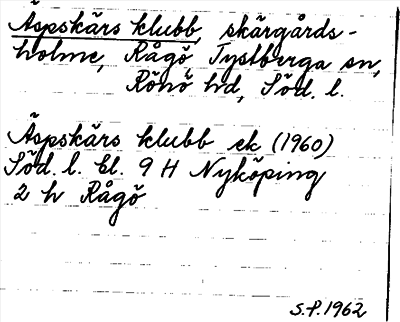 Äspskärs klubb, skärgårds-
holme, Rågö, Tystberga sn,
Rönö hd, Söd. l.
Äspskärs klubb ek (1960)
Söd. l. bl. 9 H Nyköping
2 h Rågö
S.P. 1962